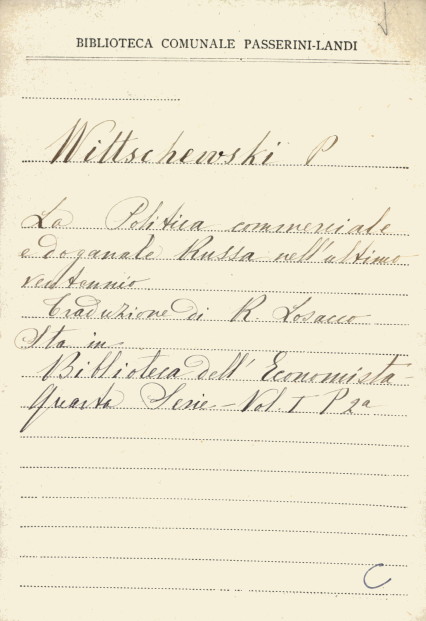 BIBLIOTECA COMUNALE PASSERINI-LANDI
Wittschewski P
La Politica commerciale
e doganale Russa nell'ultimo
ventennio
Traduzione di R. Losacco
Sta in
Biblioteca dell'Economista
Quarta Serie - Vol. I P 2a
C